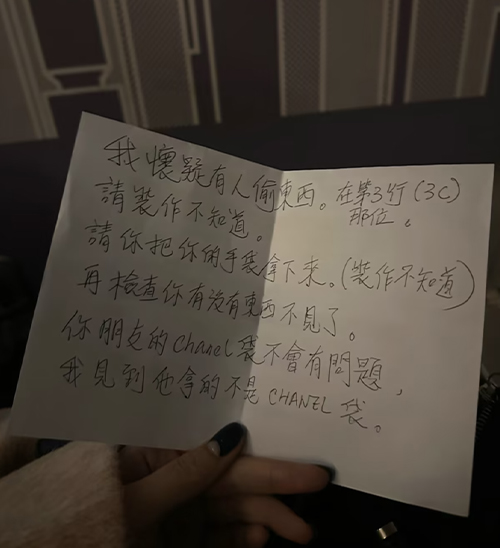 我懷疑有人偷東西。在第3行(3C)
那位。
請裝作不知道。
請你把你的手袋拿下來。(裝作不知道)
再檢查你有沒有東西不見了。
你朋友的chanel袋不會有問題,
我見到他拿的不是CHANEL袋。